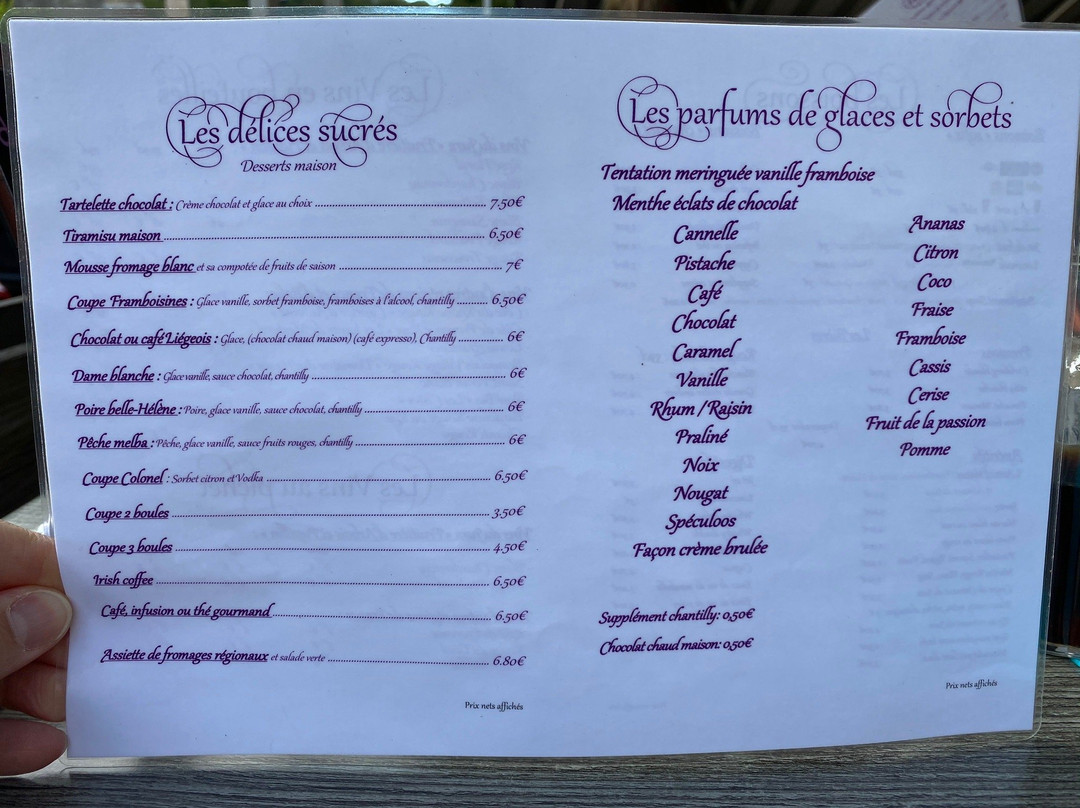 Les délices sucrés
Desserts maison
Tartelette chocolat : Crème chocolat et glace au choix 7.50€
Tiramisu maison 6.50€
Mousse fromage blanc et sa compotée de fruits de saison 7€
Coupe Framboisines : Glace vanille, sorbet framboise, framboises à l'alcool, chantilly 6.50€
Chocolat ou café Liégeois : Glace, (chocolat chaud maison) (café expresso), Chantilly 6€
Dame blanche : Glace vanille, sauce chocolat, chantilly 6€
Poire belle-Hélène : Poire, glace vanille, sauce chocolat, chantilly 6€
Pêche melba : Pêche, glace vanille, sauce fruits rouges, chantilly 6€
Coupe Colonel : Sorbet citron et Vodka 6.50€
Coupe 2 boules 3.50€
Coupe 3 boules 4.50€
Irish coffee 6.50€
Café, infusion ou thé gourmand 6.50€
Assiette de fromages régionaux et salade verte 6.80€
Prix nets affichés
Les parfums de glaces et sorbets
Tentation meringuée vanille framboise
Menthe éclats de chocolat
Cannelle
Pistache
Café
Chocolat
Caramel
Vanille
Rhum / Raisin
Praliné
Noix
Nougat
Spéculoos
Façon crème brulée
Ananas
Citron
Coco
Fraise
Framboise
Cassis
Cerise
Fruit de la passion
Pomme
Supplément chantilly: 0,50€
Chocolat chaud maison: 0,50€
Prix nets affichés